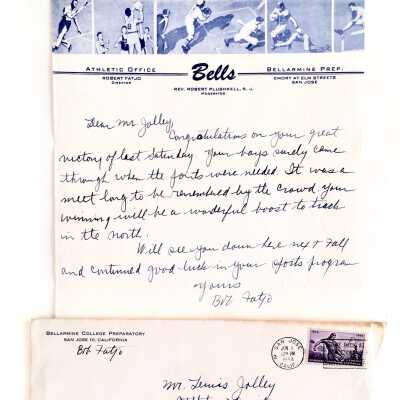 ATHLETIC OFFICE
ROBERT FATJO
DIRECTOR
Bells
REV. ROBERT PLUSHKELL, S. J.
MODERATOR
BELLARMINE PREP.
EMORY AT ELM STREETS
SAN JOSE
Dear Mr. Jolley,
Congratulations on your great
victory of last Saturday. Your boys surely came
through when the points were needed. It was a
meet long to be remembered by the crowd. Your
winning will be a wonderful boost to track
in the north.
Will see you down here next Fall
and continued good luck in your sports program
Yours
Bob Fatjo
BELLARMINE COLLEGE PREPARATORY
SAN JOSE 10, CALIFORNIA
Bob Fatjo
SAN JOSE
JUN
PM
CALIF.
Mr. Jolley